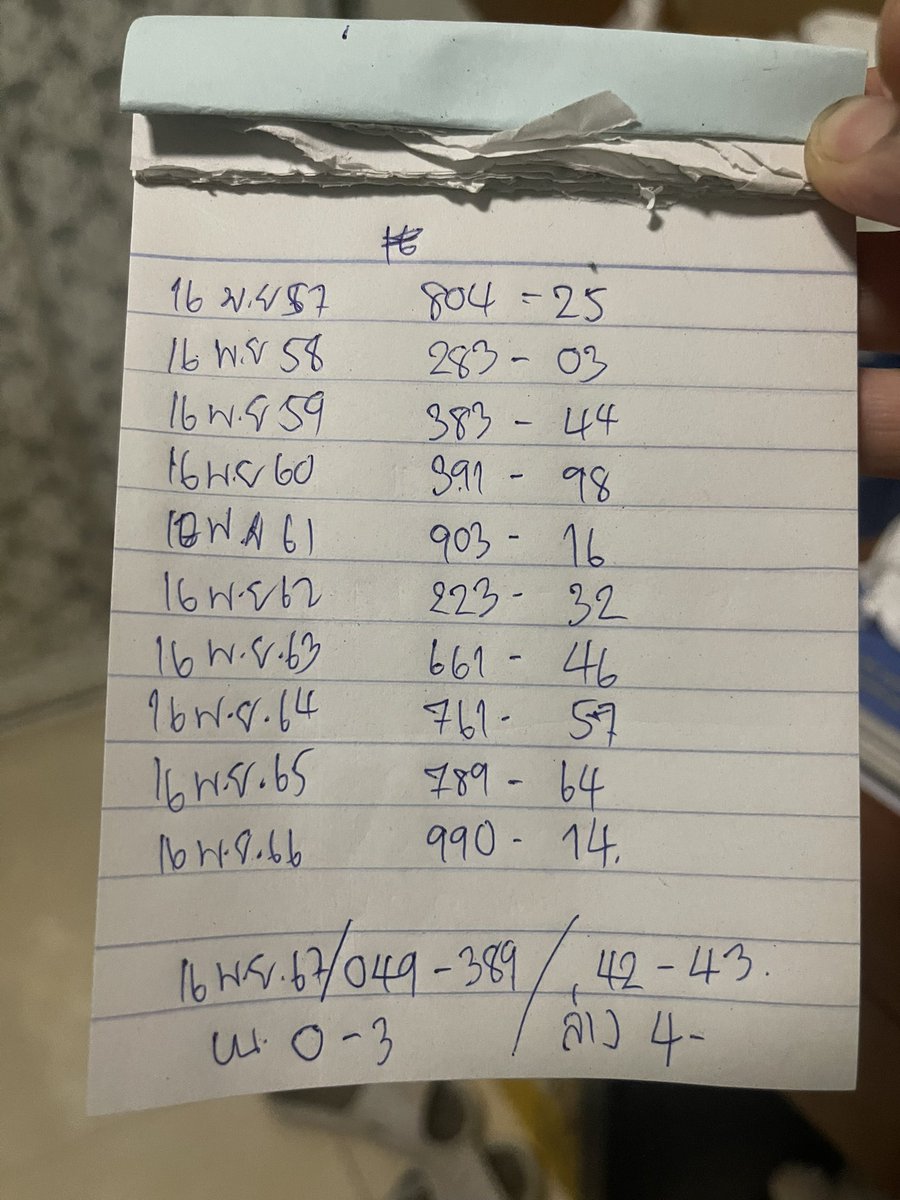 16 พ.ย 57 804 = 25
16 พ.ย 58 283 - 03
16 พ.ย 59 383 - 44
16 พ.ย 60 391 - 98
16 พ.ย 61 903 - 16
16 พ.ย 62 223 - 32
16 พ.ย.63 661 - 46
16 พ.ย.64 761 - 57
16 พ.ย.65 789 - 64
16 พ.ย.66 990 - 14.
16 พ.ย.67/049 - 389 / 42 - 43.
บน. 0 - 3 / ล่าง 4 -